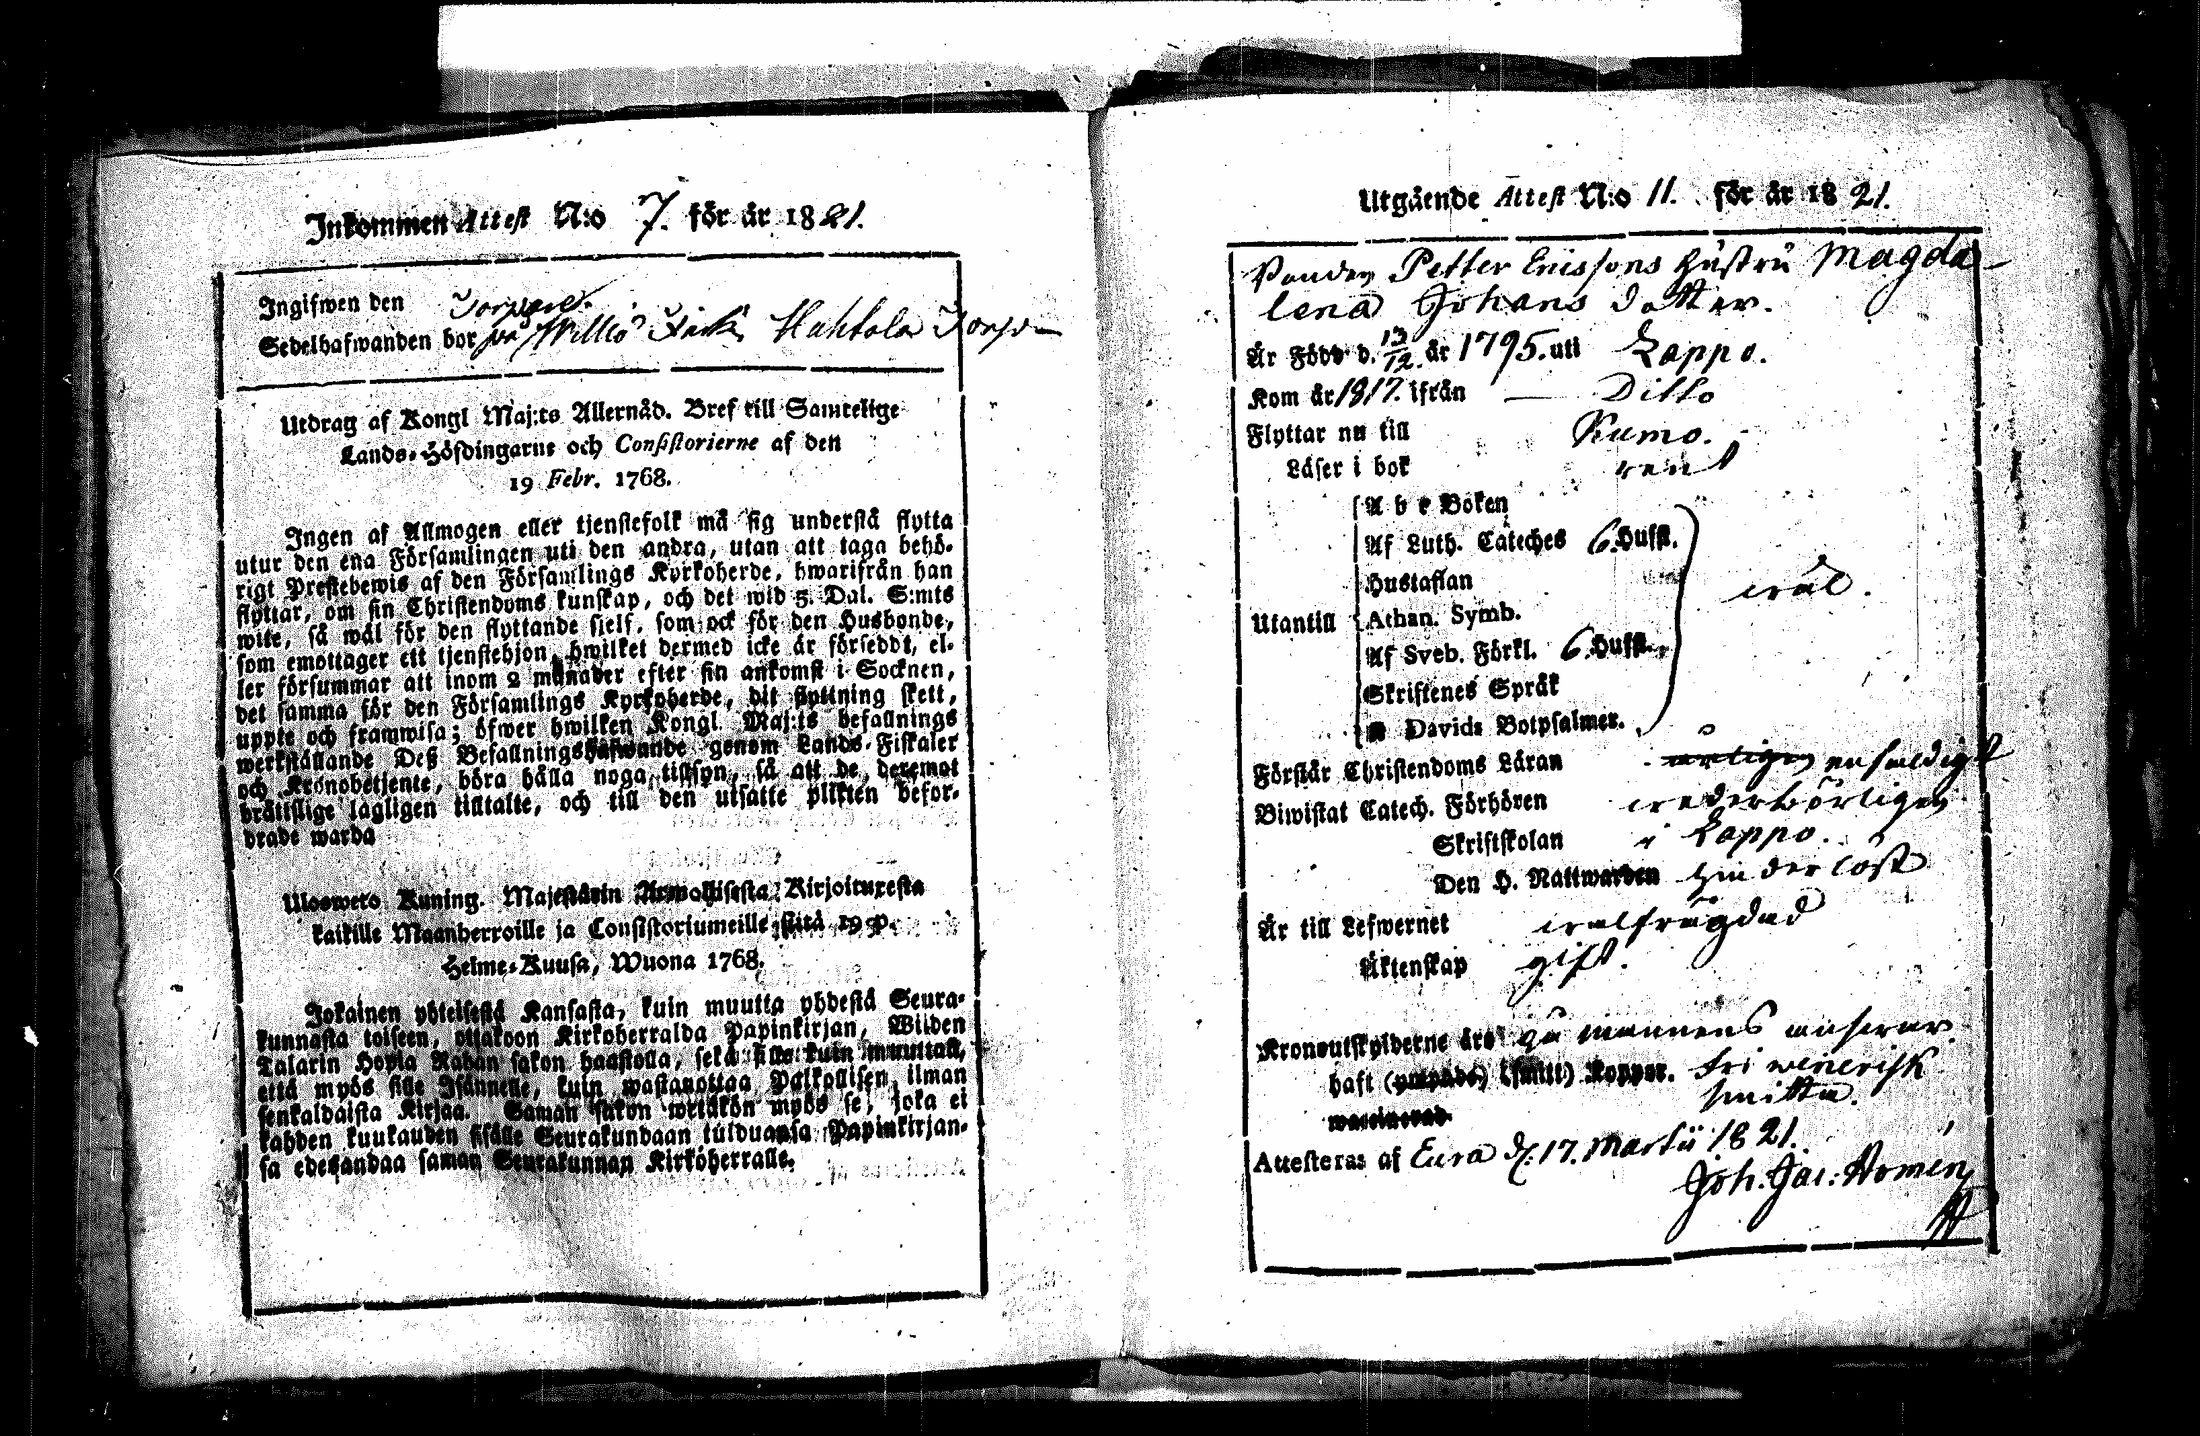 Inkommen Attest N:o 7. för år 1821.
Ingifwen den Torpare.
Sedelhafwanden bor på Willio Jack Huhtala Torp
Utdrag af Kongl Maj:ts Allernåd. Bref till Samtelige
Lands-Höfdingarne och Consistorierne af den
19 Febr. 1768.
Ingen af Allmogen eller tjenstefolk må sig understå flytta
utur den ena Församlingen uti den andra, utan att taga behö-
rigt Prestebewis af den Församlings Kyrkoherde, hwarifrån han
flyttar, om sin Christendoms kunskap, och det wid 5. Dal. S:mts
wite, så wäl för den flyttande sjelf, som ock för den Husbonde,
som emottager ett tjenstehjon, hwilket dermed icke är försedt, el-
ler försummar att inom 2 månader efter sin ankomst i Socknen,
det samma för den Församlings Kyrkoherde, dit flyttning skett,
uppte och framwisa; öfwer hwilken Kongl Maj:ts befallnings
werkställande Deß Befallningshafwande genom Lands-Fiskaler
och Kronobetjente, böra hålla noga tillsyn, så att de deremot
bråttslige lagligen tilltalte, och till den utsatte plikten befor-
drade warda
Uloswero Kuning. Majestätin Armollisesta Kirjoituxesta
kaikille Maanherroille ja Consistoriumeille sitä 19 p.
Helme-Kuusa, Wuona 1768.
Jokainen yhteisestä Kansasta, kuin muutta yhdestä Seura-
kunnasta toiseen, ottakoon Kirkoherralda Papinkirjan, Wilden
Talarin Hopia Rahan sakon haastolla, sekä sille kuin muuttaa,
että myös sille Isännelle, kuin wastanottaa Palkollisen ilman
senkaldaista Kirjaa. Saman sakon wetäkön myös se, joka ei
kahden kuukauden sisälle Seurakundaan tulduansa Papinkirjan-
sa edesandaa saman Seurakunnan Kirkoherralle.
Utgående Attest N:o 11. för år 1821.
Petter Erissons Hustru Magda-
lena Johans dotter.
Är Född d. 13/12. år 1795. uti Lappo.
Kom år 1817. ifrån — Ditto
Flyttar nu till Kumo.
Läser i bok rent
A b c Boken
Af Luth. Cateches 6. Hufst.
Hustaflan
Utantill Athan. Symb. wäl.
Af Sveb. Förkl. 6. Hufst.
Skriftenes Språk
Davids Botpsalmer.
Förstår Christendoms Läran enfaldigt
Biwistat Catech. Förhören wederbörligen
Skriftskolan i Lappo.
Den H. Nattwarden hinderlöst
Är till Lefwernet wälfrägdad
Äktenskap gift.
Kronoutskylderne äro på mannens answar
haft (ympade) (smitt) Koppor. fri wenerisk
waccinerad. smitta.
Attesteras af Eura d. 17. Martii 1821.
Joh. Jac: Nomén